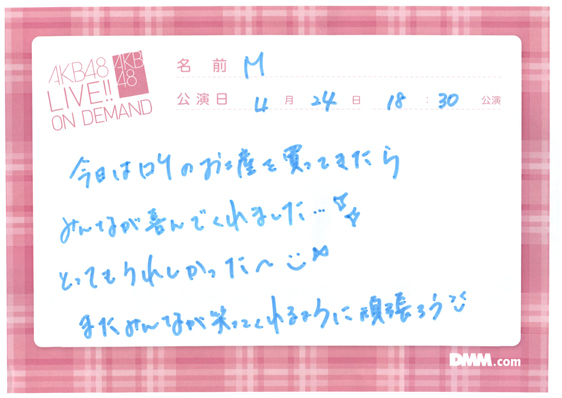 AKB48
LIVE!!
ON DEMAND
AKB
48
名前 M
公演日 4月 24日 18:30 公演
今日はロケのお土産を買ってきたら
みんなが喜んでくれました…
とってもうれしかった〜
またみんなが笑ってくれるように頑張ろう
DMM.com